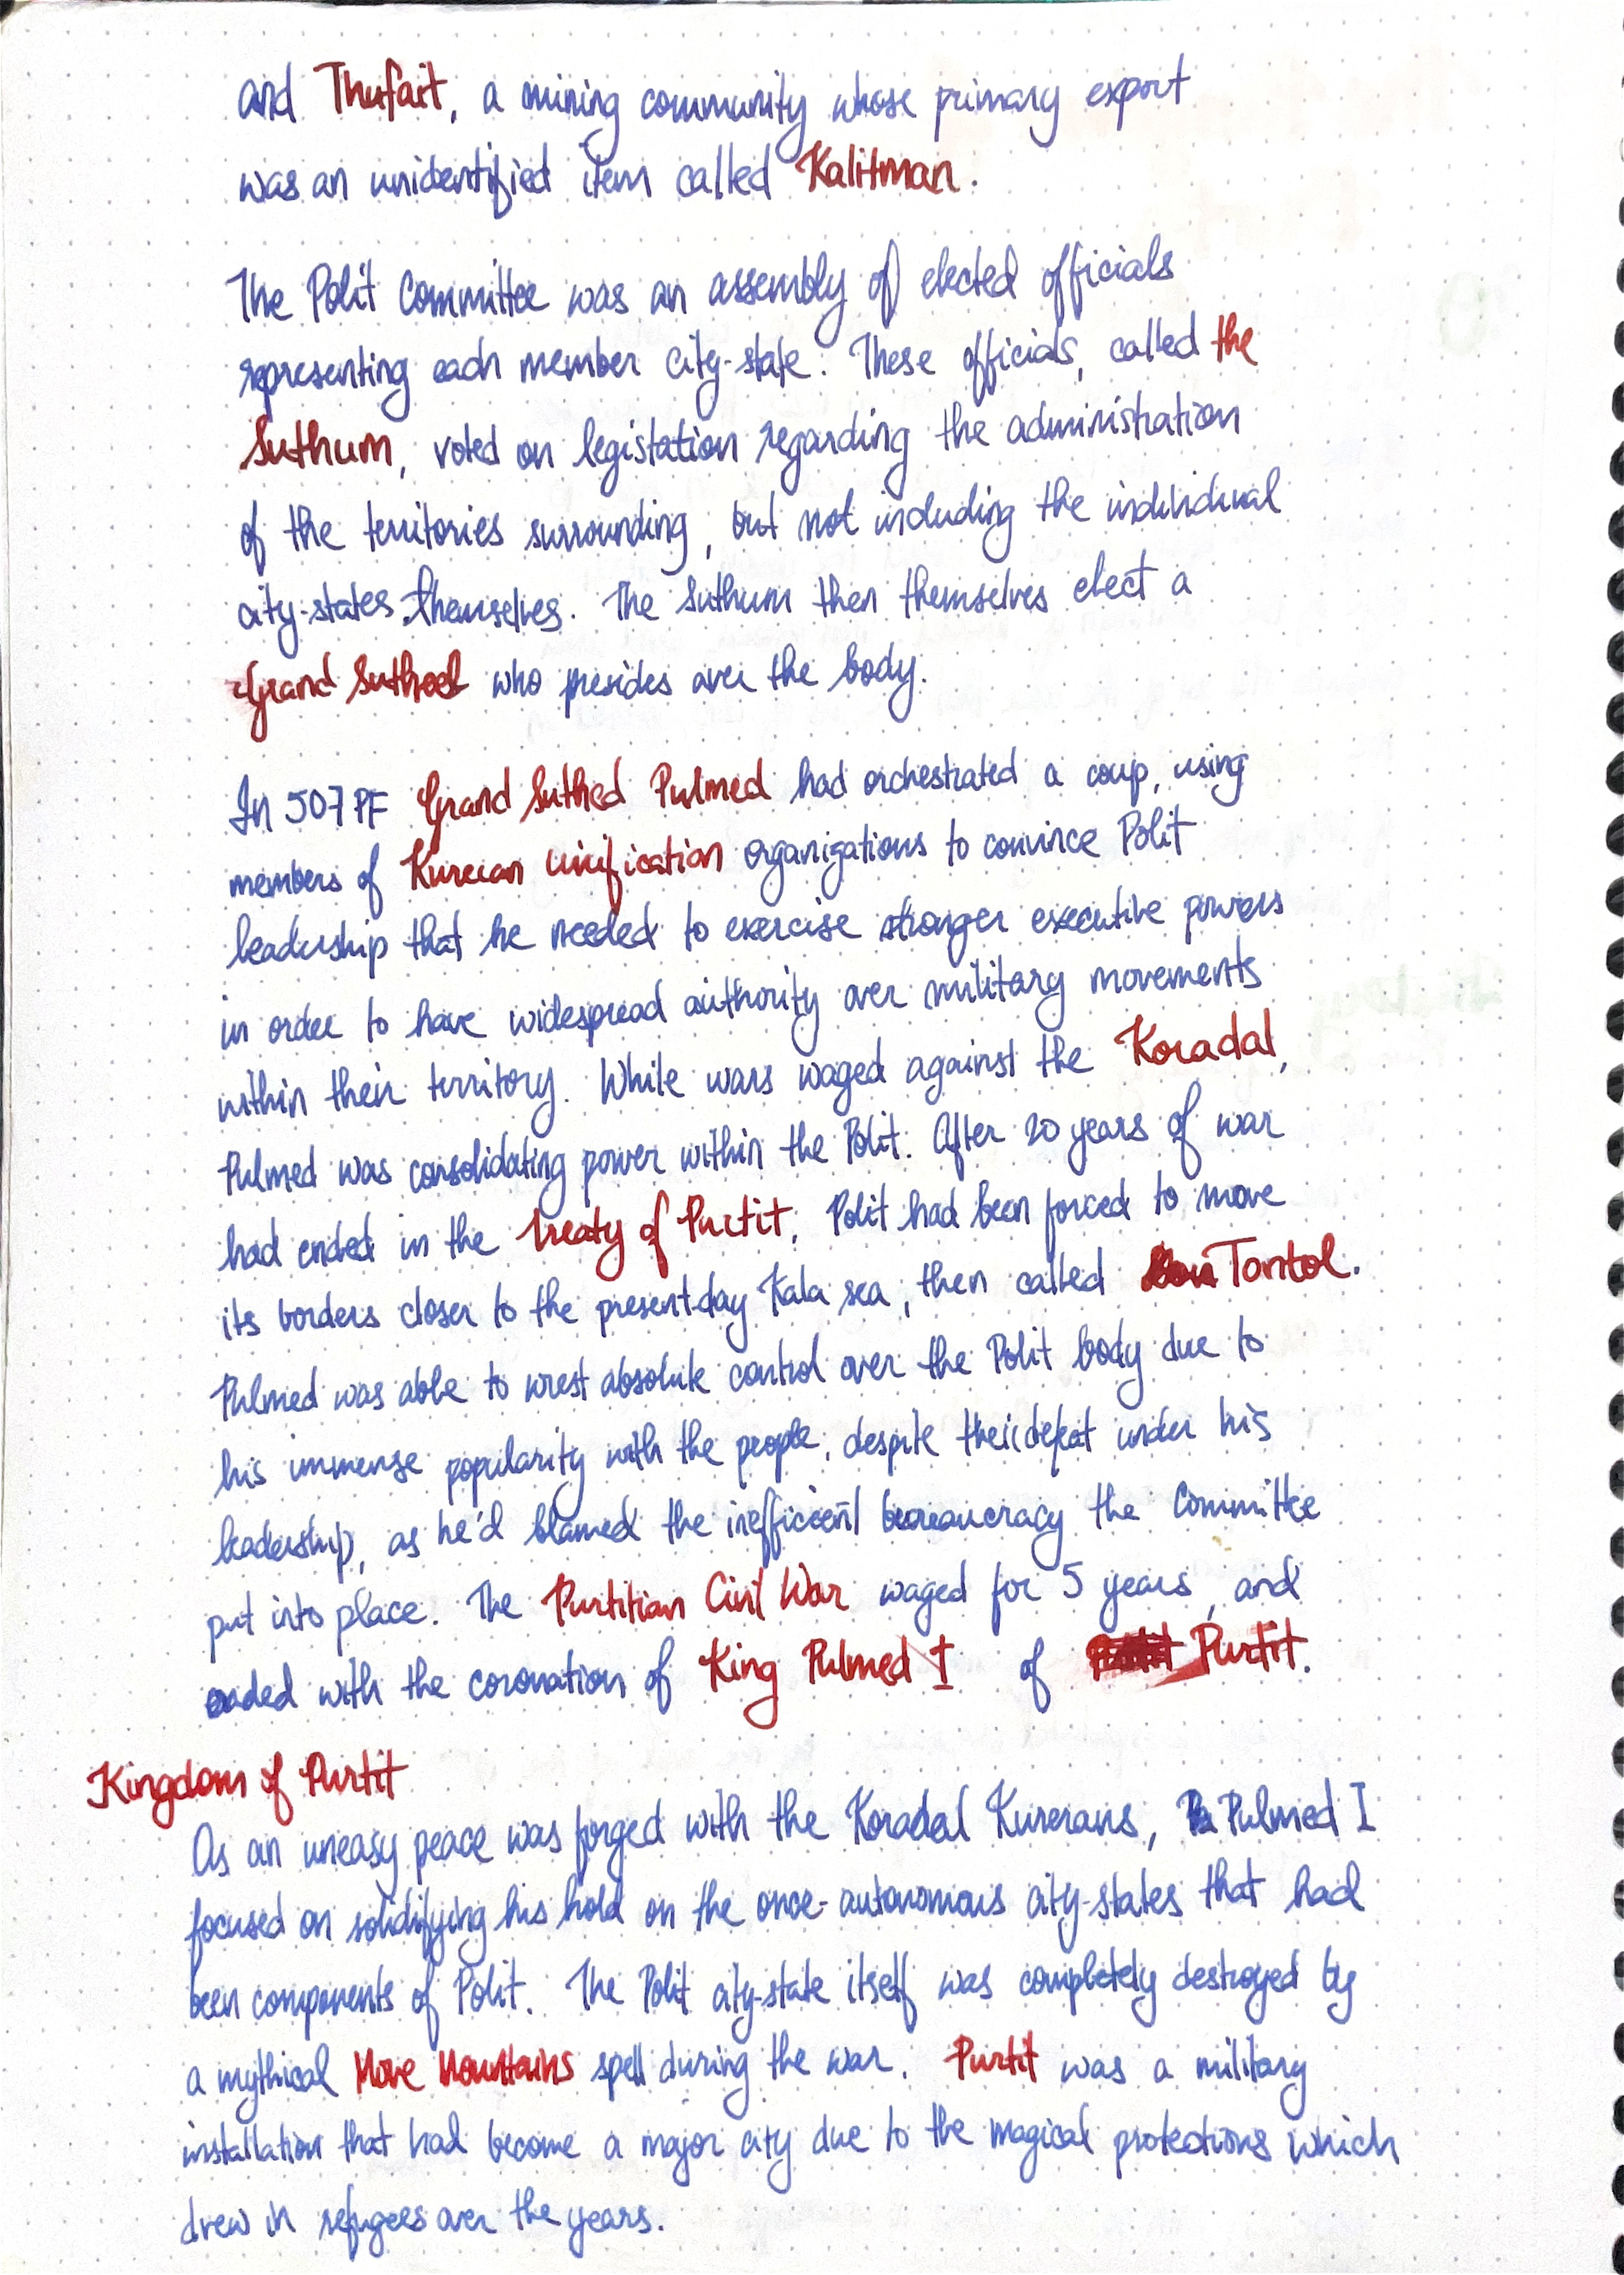 and Thufait, a mining community whose primary export
was an unidentified item called Kalitman.
The Polit Committee was an assembly of elected officials
representing each member city-state. These officials, called the
Suthum, voted on legistation regarding the administration
of the territories surrounding, but not including the individual
city-states themselves. The Suthum then themselves elect a
Grand Suthed who presides over the body.
In 507 PF Grand Suthed Pulmed had orchestrated a coup, using
members of Kurecan Unification organizations to convince Polit
leadership that he needed to exercise stronger executive powers
in order to have widespread authority over military movements
within their territory. While wars waged against the Koradal,
Pulmed was consolidating power within the Polit. After 20 years of war
had ended in the treaty of Purtit, Polit had been forced to move
its borders closer to the present-day Kala sea, then called Tontol.
Pulmed was able to wrest absolute control over the Polit body due to
his immense popularity with the people, despite their defeat under his
leadership, as he'd blamed the inefficient bureaucracy the Committee
put into place. The Purtitian Civil War waged for 5 years, and
ended with the coronation of King Pulmed I of Purtit.
Kingdom of Purtit
As an uneasy peace was forged with the Koradal Kurerans, Pulmed I
focused on solidifying his hold on the once-autonomous city-states that had
been components of Polit. The Polit city-state itself was completely destroyed by
a mythical Move Mountains spell during the war. Purtit was a military
installation that had become a major city due to the magical protections which
drew in refugees over the years.